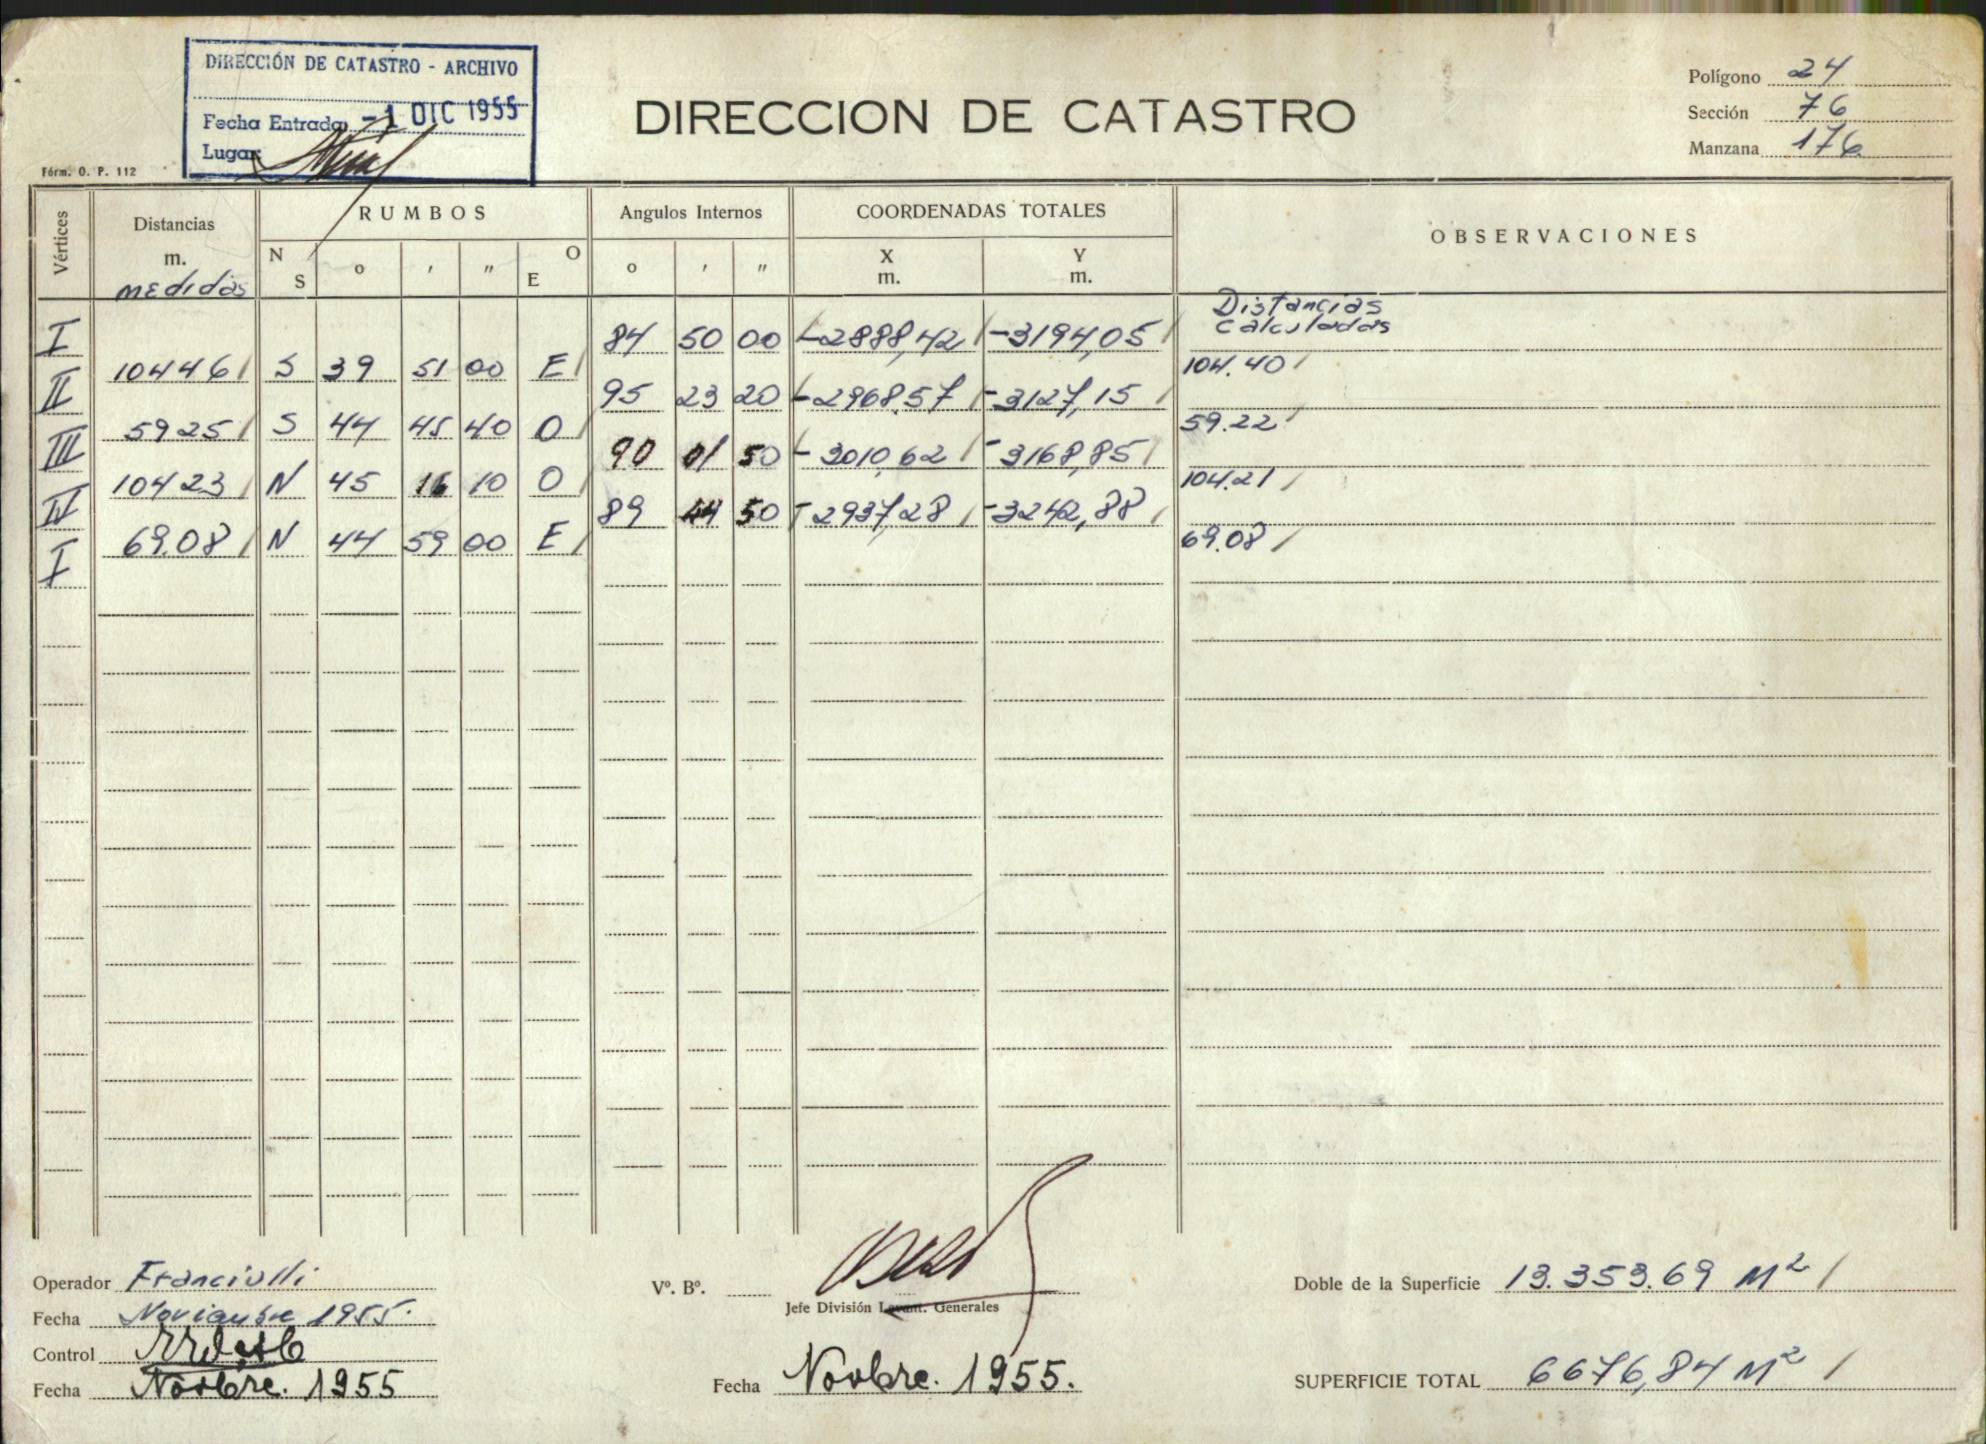 DIRECCIÓN DE CATASTRO - ARCHIVO
Fecha Entrada -1 DIC 1955
Lugar
Fórm. O. P. 112
DIRECCION DE CATASTRO
Polígono 24
Sección 76
Manzana 176
Vértices Distancias m. medidas RUMBOS Angulos Internos COORDENADAS TOTALES OBSERVACIONES
N S o ' " O E o ' " X m. Y m.
Distancias
calculadas
I 84 50 00 -2888,42 -3194,05
104 46 S 39 51 00 E 104.40
II 95 23 20 -2968,57 -3127,15
59 25 S 44 45 40 O 59.22
III 90 01 50 -3010,62 -3168,85
104 23 N 45 16 10 O 104.21
IV 89 44 50 -2937,28 -3242,88
69.08 N 44 59 00 E 69.08
I
Operador Franciulli
Fecha Noviembre 1955.
Control
Fecha Novbre. 1955
Vº. Bº.
Jefe División Levant. Generales
Fecha Novbre. 1955.
Doble de la Superficie 13.353.69 M²
SUPERFICIE TOTAL 6676,84 M²